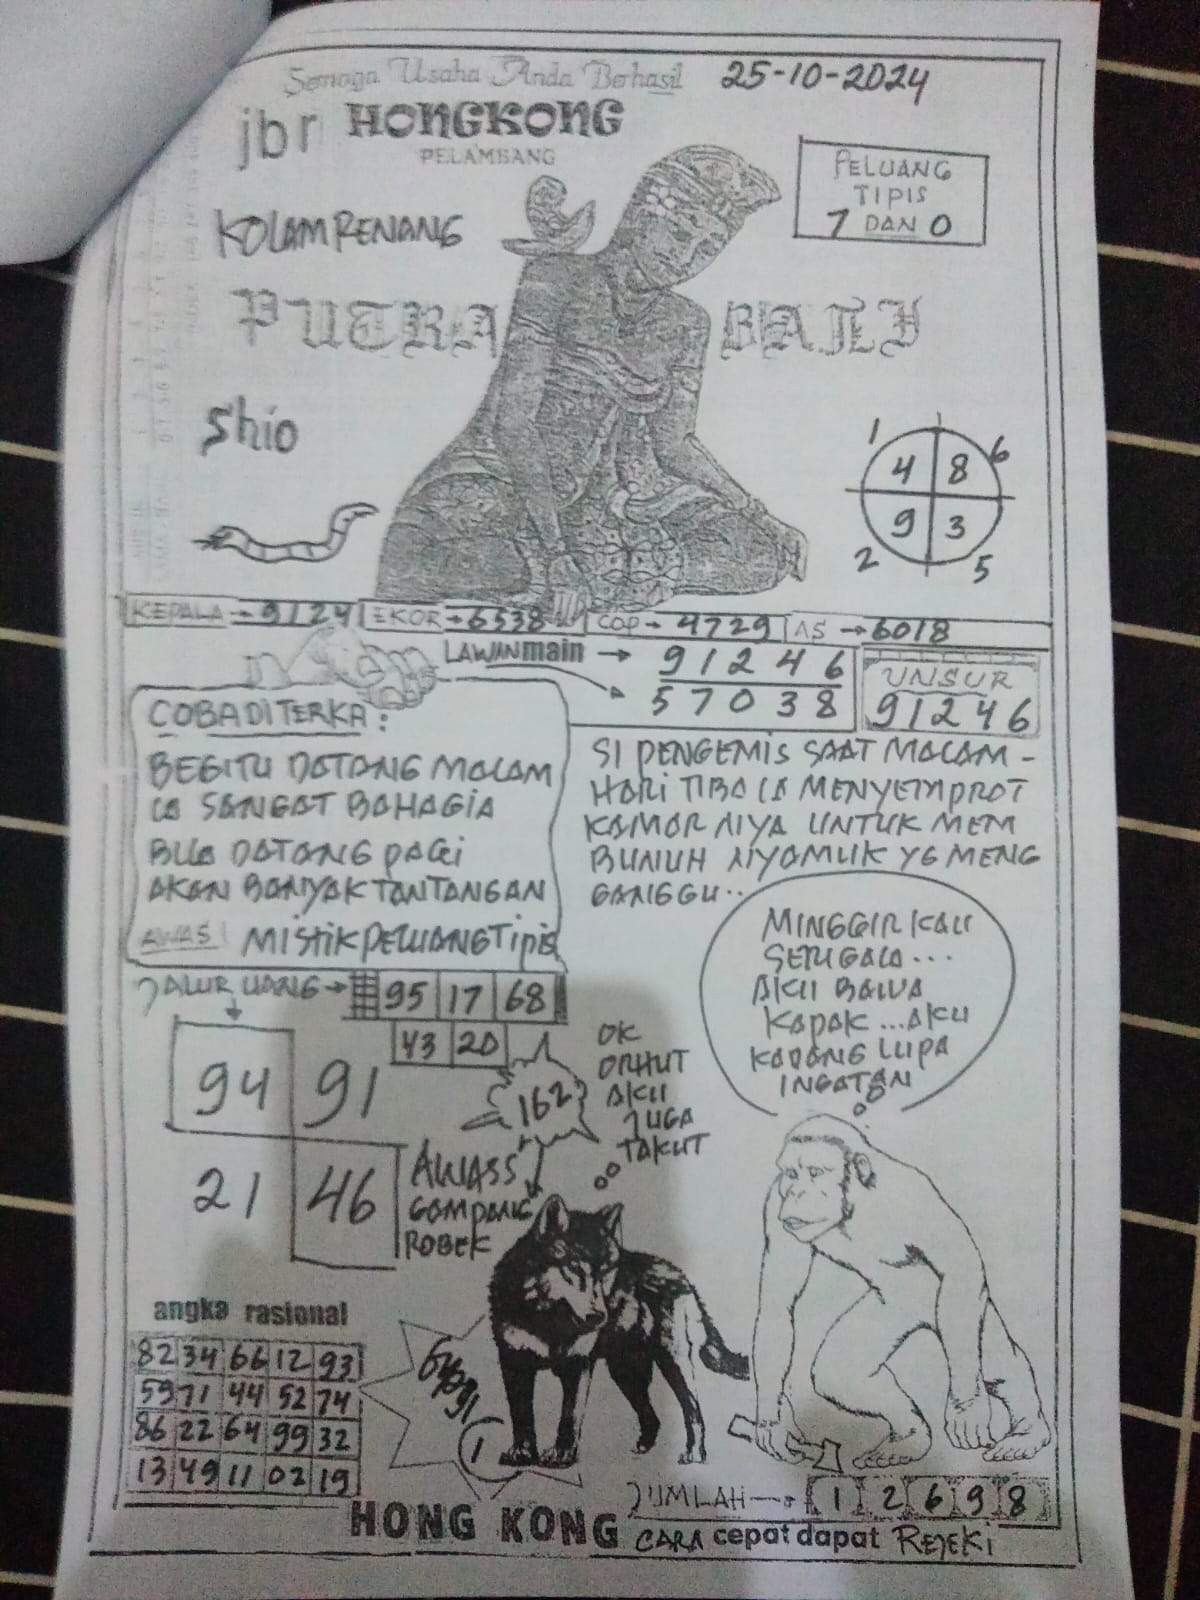 Semoga Usaha Anda Berhasil
25-10-2024
jbr HONGKONG
PELAMBANG
PELUANG
TIPIS
7 DAN 0
KOLAM RENANG
PUTRA BALI
Shio
1 6
4 8
9 3
2 5
KEPALA → 9124 EKOR → 6538 COP → 4729 AS → 6018
LAWAN main → 91246
57038
UNSUR
91246
COBA DITERKA :
BEGITU DATANG MALAM
IA SANGAT BAHAGIA
BILA DATANG PAGI
AKAN BANYAK TANTANGAN
AWAS! MISTIK PELUANG TIPIS
SI PENGEMIS SAAT MALAM -
HARI TIBA IA MENYEMPROT
KAMAR NYA UNTUK MEM
BUNUH NYAMUK YG MENG
GANGGU..
JALUR UANG → 95 17 68
43 20
94 91
21 46
AWASS
GAMPANG
ROBEK
162
OK
JUGA
AKU
TAKUT
MINGGIR KAU
SERIGALA...
AKU BAWA
KAPAK ...AKU
KADANG LUPA
INGATAN
angka rasional
82 34 66 12 93
59 71 44 52 74
86 22 64 99 32
13 49 11 02 19
1
JUMLAH → 1 2 6 9 8
HONG KONG CARA cepat dapat REJEKI